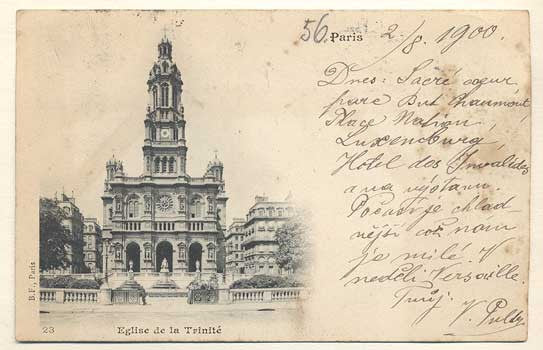 56.
Paris 2/8. 1900.
Dnes: Sacré coeur
parc But Chaumont
Place Nation,
Luxemburg,
Hotel des Invalides
a na výstavu.
Počasí je chlad-
nější což nám
je milé. V
neděli Versaille.
Tvůj
V.
B.F., Paris
23
Eglise de la Trinité